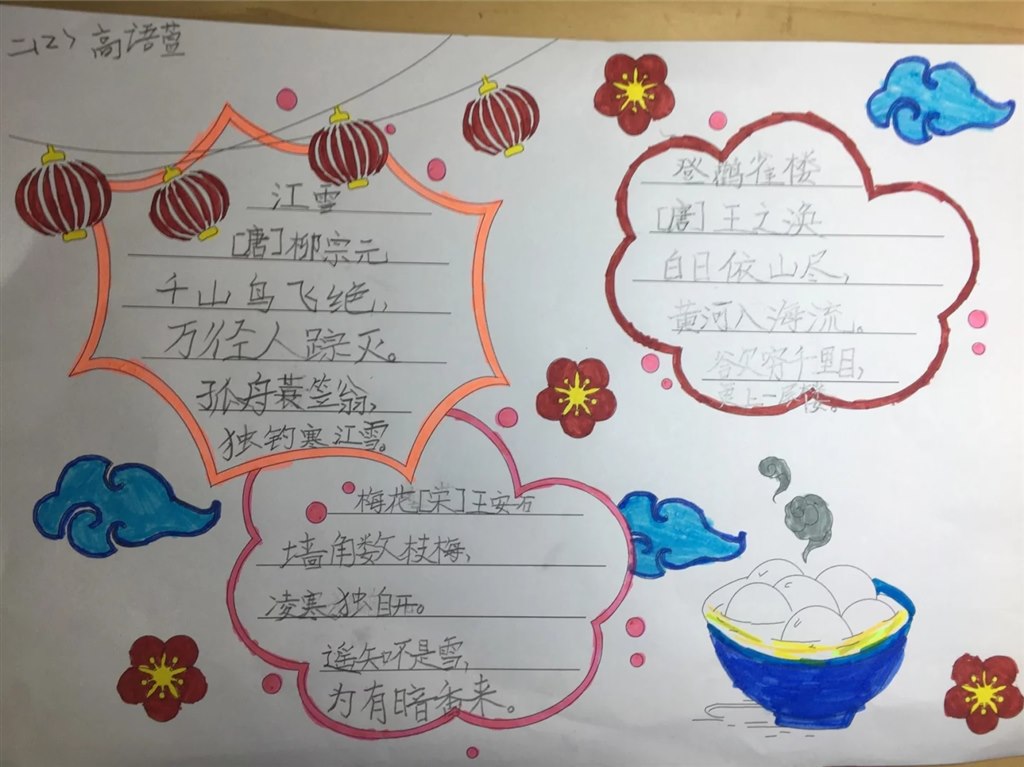 二(2) 高语萱
江雪
[唐]柳宗元
千山鸟飞绝,
万径人踪灭。
孤舟蓑笠翁,
独钓寒江雪。
登鹳雀楼
[唐]王之涣
白日依山尽,
黄河入海流。
千里目,
更上一层楼。
梅花[宋]王安石
墙角数枝梅,
凌寒独自开。
遥知不是雪,
为有暗香来。